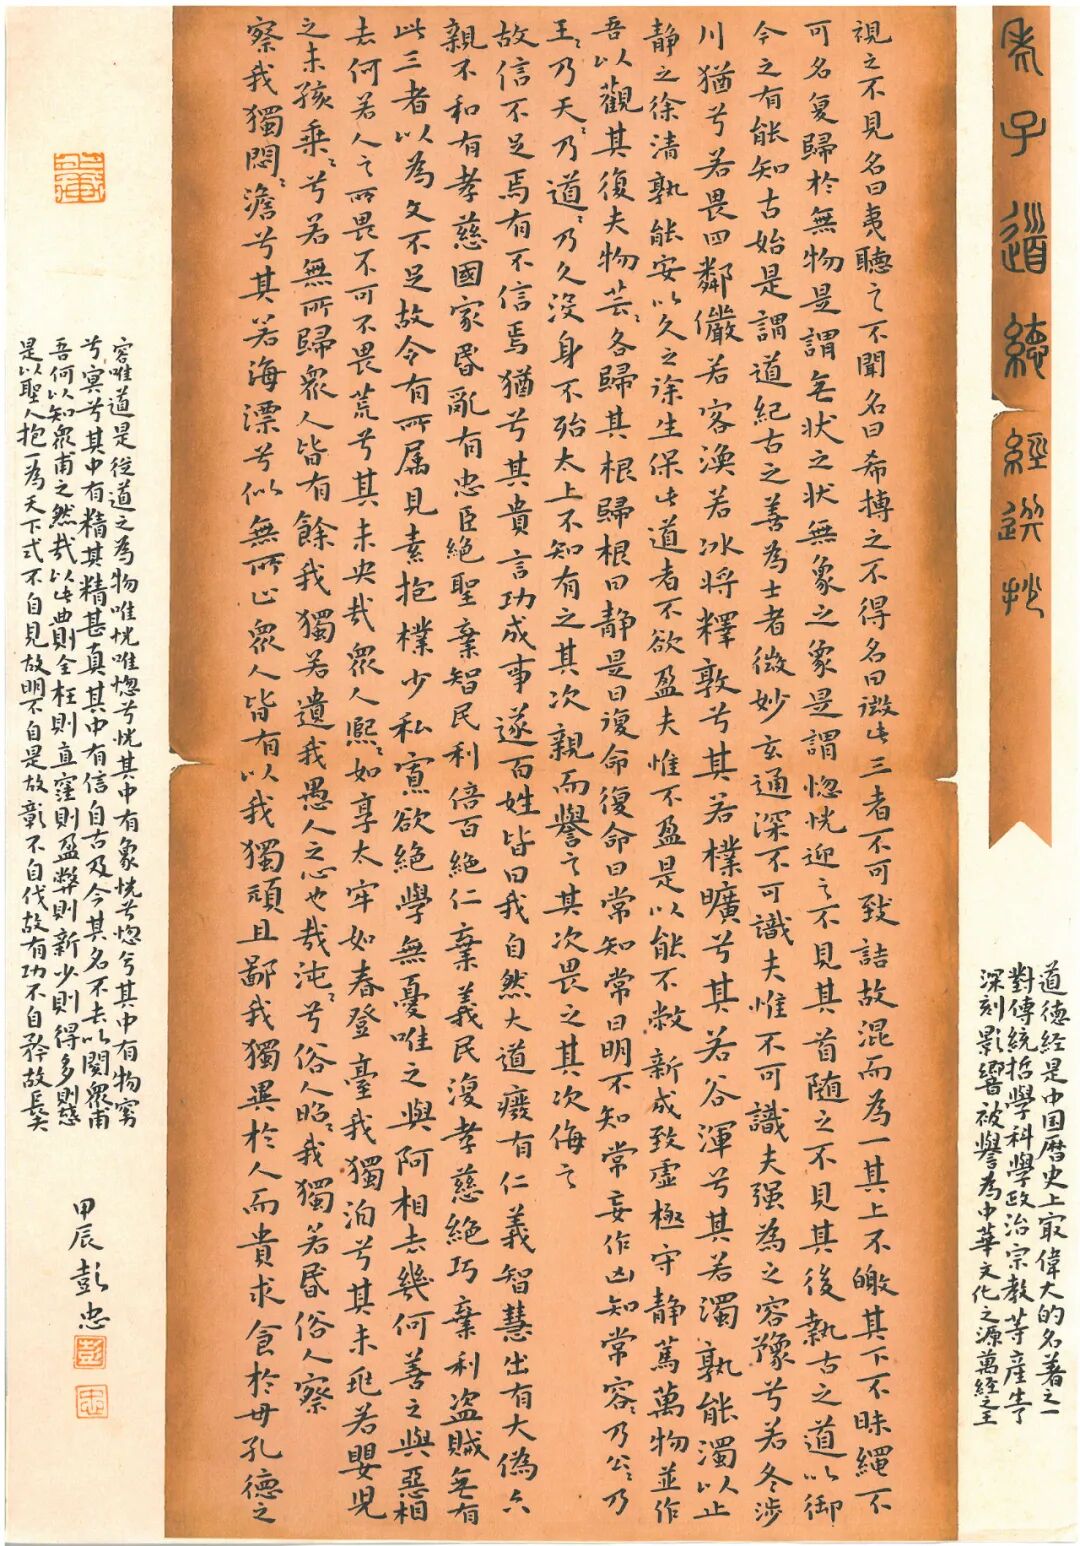 老子道德經選抄
道德经是中国歷史上最偉大的名著之一
對傳統哲學科學政治宗教等產生了
深刻影響被譽為中華文化之源萬經之王
視之不見名曰夷聽之不聞名曰希搏之不得名曰微此三者不可致詰故混而為一其上不皦其下不昧繩不
可名复歸於無物是謂无状之状無象之象是謂惚恍迎之不見其首随之不見其後執古之道以御
今之有能知古始是謂道紀古之善為士者微妙玄通深不可識夫惟不可識夫强為之容豫兮若冬涉
川猶兮若畏四鄰儼若客渙若冰將釋敦兮其若樸曠兮其若谷渾兮其若濁孰能濁以止
静之徐清孰能安以久之徐生保此道者不欲盈夫惟不盈是以能不敝新成致虚極守静篤萬物並作
吾以觀其復夫物芸〻各歸其根歸根曰静是曰復命復命曰常知常曰明不知常妄作凶知常容〻乃公〻乃
王〻乃天〻乃道〻乃久没身不殆太上不知有之其次親而譽之其次畏之其次侮之
故信不足焉有不信焉猶兮其貴言功成事遂百姓皆曰我自然大道廢有仁義智慧出有大偽六
親不和有孝慈國家昏亂有忠臣絕聖棄智民利倍百絕仁棄義民復孝慈絕巧棄利盗賊无有
此三者以為文不足故令有所属見素抱樸少私寡欲絕學無憂唯之與阿相去幾何善之與惡相
去何若人之所畏不可不畏荒兮其未央哉眾人熙〻如享太牢如春登臺我獨泊兮其未兆若嬰兒
之未孩乘〻兮若無所歸眾人皆有餘我獨若遺我愚人之心也哉沌〻兮俗人昭〻我獨若昏俗人察
察我獨悶〻澹兮其若海漂兮似無所止眾人皆有以我獨頑且鄙我獨異於人而貴求食於母孔德之
容唯道是從道之為物唯恍唯惚兮恍其中有象恍兮惚兮其中有物窈
兮冥兮其中有精其精甚真其中有信自古及今其名不去以閱眾甫
吾何以知眾甫之然哉以此曲則全枉則直窪則盈弊則新少則得多則惑
是以聖人抱一為天下式不自見故明不自是故彰不自伐故有功不自矜故長矣
甲辰彭忠
彭
忠